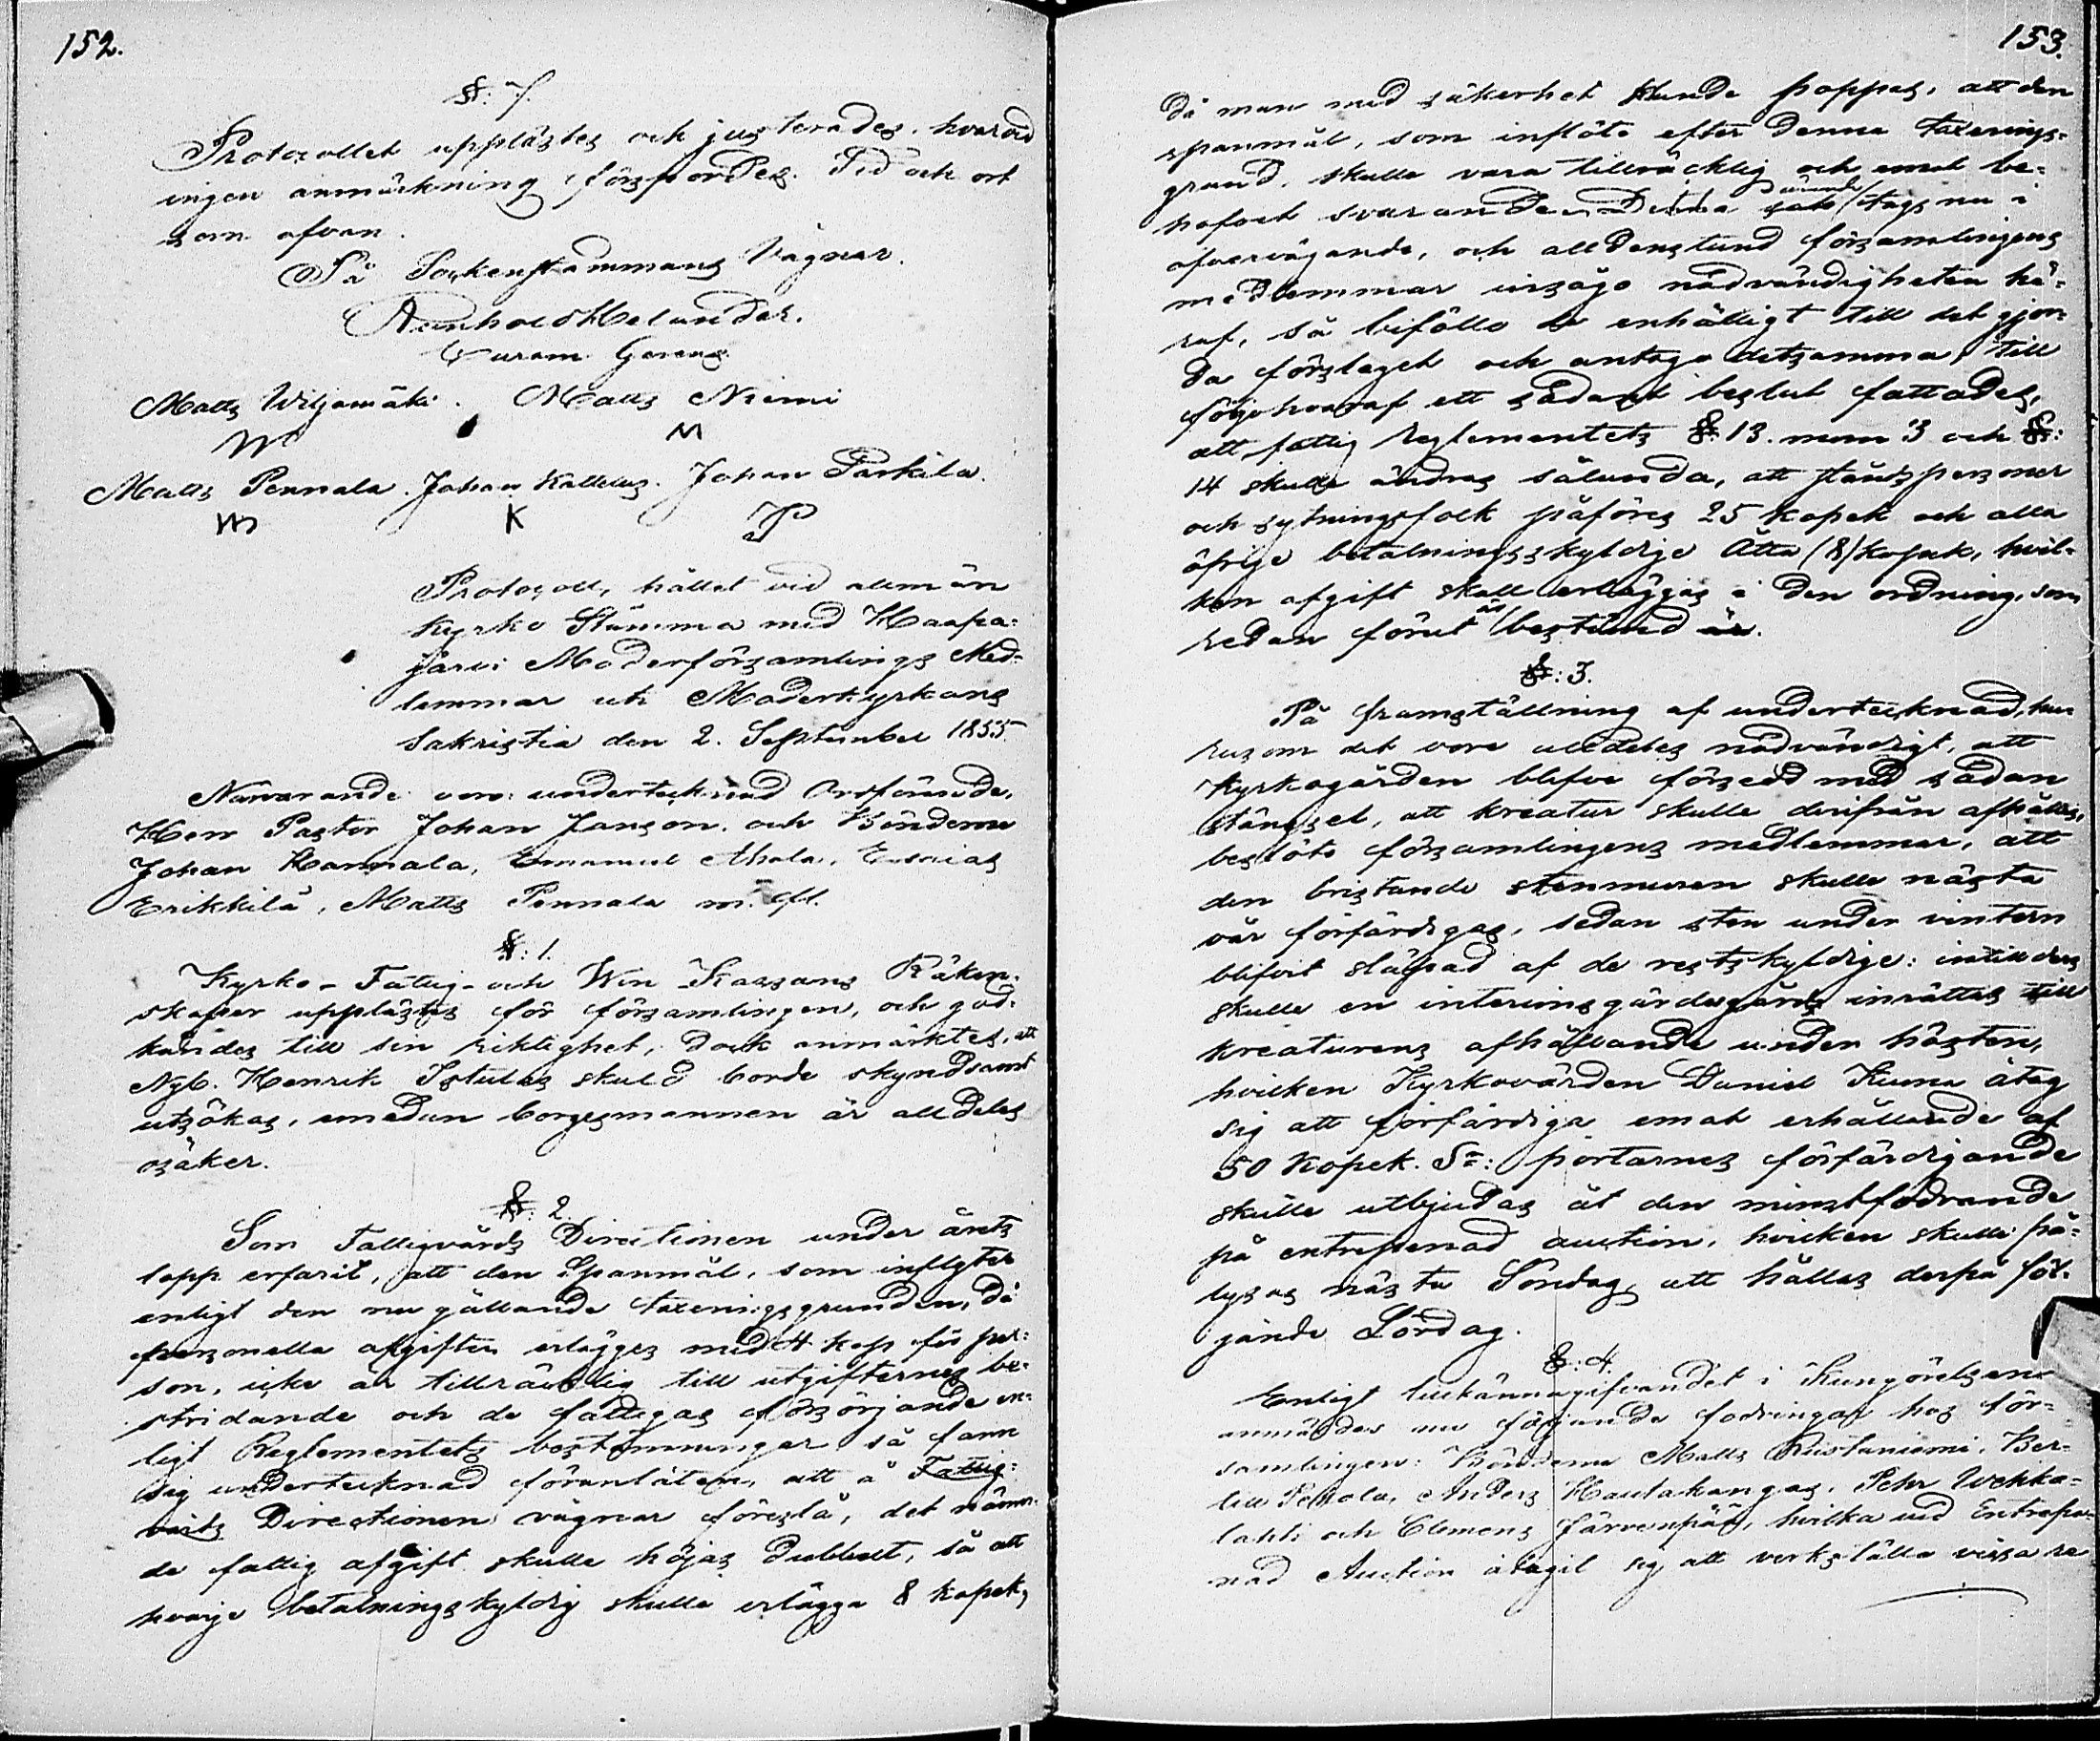 152.
§: 7.
Protocollet upplästes och justerades, hvarvid
ingen anmärkning förspordes. Tid och ort
som ofvan.
På Sockenstämmans Vägnar.
Helander.
Matts Wiljamäki. Matts Niemi
M M
Matts Pennala. Johan Kallelus. Johan Parkila.
M K P
Protocoll, hållet vid allmän
Kyrko Stämma med Haapa=
järvi Moderförsamlings Med=
lemmar uti Moderkyrkans
Sakristia den 2. September 1855.
Närvarande voro: undertecknad Ordförande,
Herr Pastor Johan Janson, och Bönderne
Johan Hannala, Emanuel Ahola, Esaias
Erikkilä, Matts Pennala m. fl.
§: 1.
Kyrko- Fattig- och Win-Kassans Räken=
skaper upplästes för församlingen, och god=
kändes till sin riktighet, dock anmärktes, att
Nyb. Henrik skuld borde skyndsamt
utsökas, emedan borgesmannen är alldeles
osäker.
§: 2.
Som Fattigvårds Directionen under årets
lopp erfarit, att den Spanmål, som inflyter
enligt den nu gällande taxeringsgrunden, då
personella afgiften erlägges med 4 kop för per=
son, icke är tillräcklig till utgifternes be=
stridande och de fattigas försörjande en=
ligt Reglementets bestämmningar så fann
sig undertecknad föranlåten, att å Fattig=
vårds Directionens vägnar föreslå, det nämn=
de fattig afgift skulle höjas dubbelt, så att
hvarje betalningsskyldig skulle erlägga 8 kopek,
153.
då man med säkerhet kunde hoppas, att den
spanmål, som inflöte efter denna taxerings=
grund, skulle vara tillräcklig och emot be=
hofvet svarande. Detta ärende togs nu i
öfvervägande, och alldenstund församlingens
medlemmar insågo nödvändigheten hä=
raf, så biföllo de enhälligt till det gjor=
da förslaget och antogo detsamma, till
följe hvaraf ett sådant beslut fattades,
att fattig reglementets §: 13. mom 3 och §:
14 skulle ändras sålunda, att ståndspersoner
och sytningsfolk påföres 25 kopek och alla
öfrige betalningsskyldige Åtta (8) kopek, hvil=
ken afgift skall erläggas i den ordning, som
redan förut är bestämd är.
§: 3.
På framställning af undertecknad, hu=
rusom det vore alldeles nödvändigt, att
Kyrkogården blifve försedd med sådan
stängsel, att kreatur skulle derifrån afhållas,
beslöto församlingens medlemmar, att
den bristande stenmuren skulle nästa
vår förfärdigas, sedan sten under vintern
blifvit släpad af de restskyldige: intill dess
skulle en interims gärdesgård inrättas till
kreaturens afhållande under hösten,
hvilken Kyrkovärden Daniel Kuma åtog
sig att förfärdiga emot erhållande af
50 Kopek. Sr: portarnes förfärdigande
skulle utbjudas åt den minstfordrande
på entreprenad auction, hvilken skulle på=
lysas nästa Söndag, att hållas derpå föl=
jande Lördag.
§: 4.
Enligt tillkännagifvandet i Kungörelsen
anmäldes nu följande fodringar hos för=
samlingen: Bönderne Matts Rustaniemi, Ber=
till Anders Hautakangas, Pehr Wehka=
lahti och Clemens Järvenpää, hvilka vid Entrepre=
nad Auction åtagit sig att verkställa vissa re=